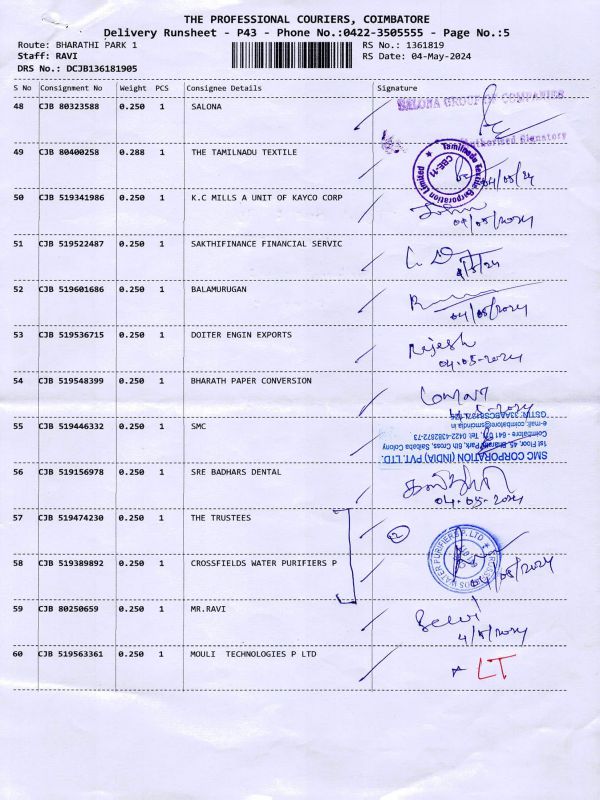 THE PROFESSIONAL COURIERS, COIMBATORE
Delivery Runsheet - P43 - Phone No.:0422-3505555 - Page No.:5
Route: BHARATHI PARK 1 RS No.: 1361819
Staff: RAVI RS Date: 04-May-2024
DRS No.: DCJB136181905
S No Consignment No Weight PCS Consignee Details Signature
48 CJB 80323588 0.250 1 SALONA
SALONA GROUP OF COMPANIES
Authorised Signatory
49 CJB 80400258 0.288 1 THE TAMILNADU TEXTILE
Tamilnadu Textile Corporation Limited
CBE-11
04/05/24
50 CJB 519341986 0.250 1 K.C MILLS A UNIT OF KAYCO CORP
04/05/2024
51 CJB 519522487 0.250 1 SAKTHIFINANCE FINANCIAL SERVIC
4/5/24
52 CJB 519601686 0.250 1 BALAMURUGAN
04/05/2024
53 CJB 519536715 0.250 1 DOITER ENGIN EXPORTS
Rijesh
04.05-2024
54 CJB 519548399 0.250 1 BHARATH PAPER CONVERSION
55 CJB 519446332 0.250 1 SMC
SMC CORPORATION (INDIA) PVT. LTD.
1st Floor, 45, Bharathi Park, 6th Cross, Saibaba Colony
Coimbatore - 641 011. Tel. 0422-4382672-73
e-mail: coimbatore@smcindia.in
56 CJB 519156978 0.250 1 SRE BADHARS DENTAL
04.05-2024
57 CJB 519474230 0.250 1 THE TRUSTEES
62
58 CJB 519389892 0.250 1 CROSSFIELDS WATER PURIFIERS P
CROSSFIELDS WATER PURIFIERS P. LTD
04/05/2024
59 CJB 80250659 0.250 1 MR.RAVI
4/5/2024
60 CJB 519563361 0.250 1 MOULI TECHNOLOGIES P LTD
LT